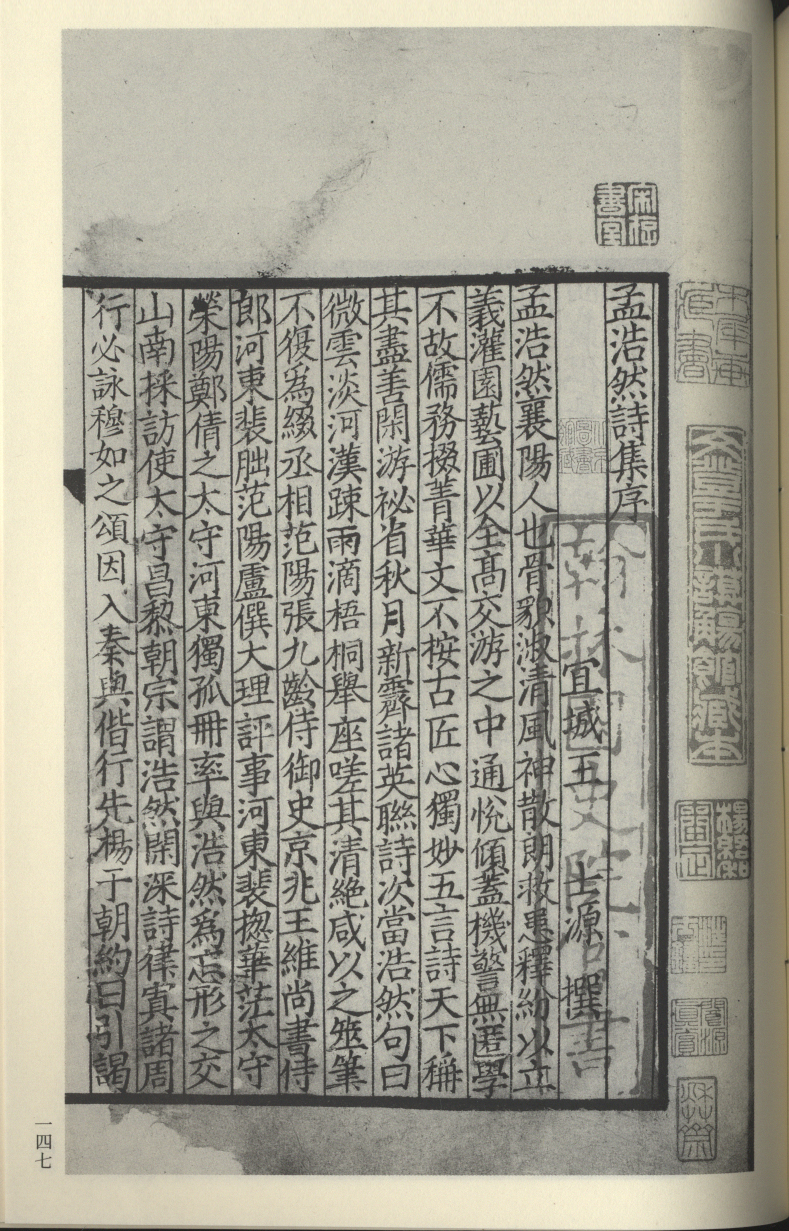 孟浩然詩集序
宜城王士源撰
孟浩然襄陽人也骨貌淑清風神散朗救患釋紛以立
義灌園藝圃以全髙交游之中通恱傾蓋機警無匿學
不故儒務掇菁華文不按古匠心獨妙五言詩天下稱
其盡善閑游祕省秋月新霽諸英聯詩次當浩然句曰
微雲淡河漢踈雨滴梧桐舉座嗟其清絶咸以之䦨筆
不復爲綴丞相范陽張九齡侍御史京兆王維尚書侍
郎河東裴朏范陽盧僎大理評事河東裴揔華茫太守
榮陽鄭倩之太守河東獨孤册率與浩然爲忘形之交
山南採訪使太守昌黎朝宗謂浩然閑深詩律寘諸周
行必詠穆如之頌因入秦與偕行先楊于朝約日引謁
宋存書室
楊紹和
翰林國史院官書
一四七